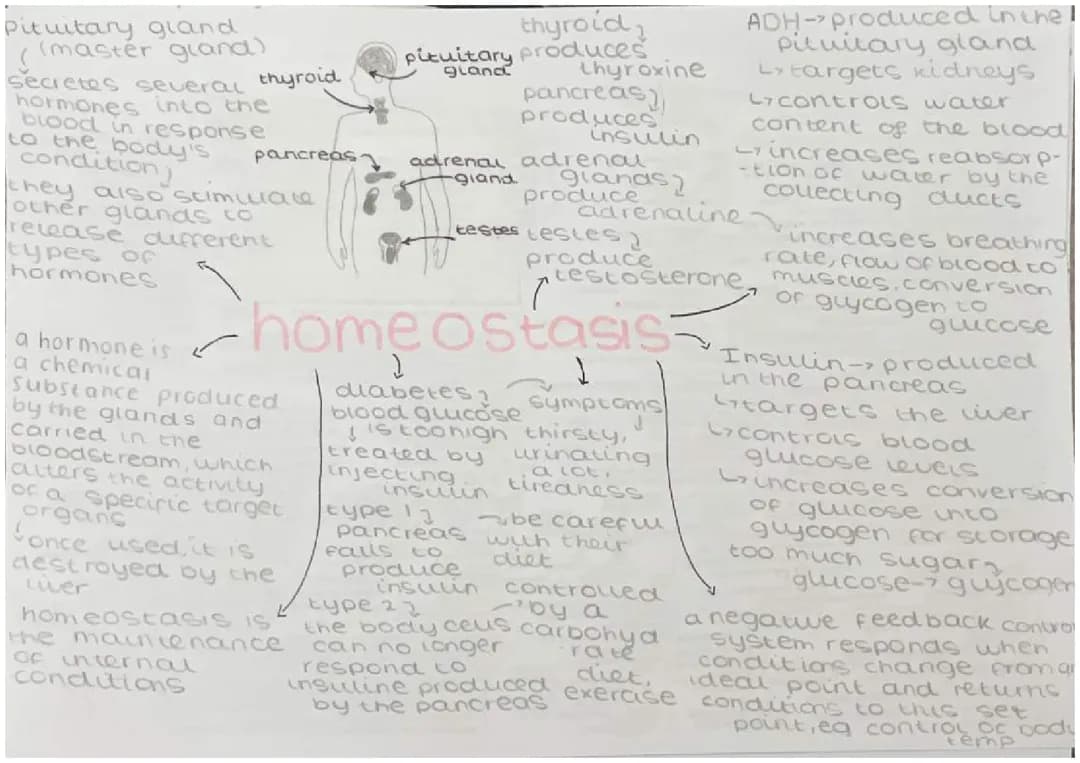 pituitary gland
(master gland)
secretes several
hormones into the
blood in response
to the body's
condition,
they also stimulate
other glands to
release different
types of
hormones
thyroid
pituitary
gland
pancreas
adrenal
gland
testes
thyroid
produces
thyroxine
pancreas
produces
insulin
adrenal
glands
produce
adrenaline
testes
produce
testosterone
ADH → produced in the
pituitary gland
↳ targets kidneys
↳ controls water
content of the blood
↳ increases reabsorp-
-tion of water by the
collecting ducts
increases breathing
rate, flow of blood to
muscles, conversion
of glycogen to
glucose
homeostasis
a hormone is
a chemical
substance produced
by the glands and
carried in the
bloodstream, which
alters the activity
of a specific target
organs
once used, it is
destroyed by the
liver
homeostasis is
the maintenance
of internal
conditions
diabetes
blood glucose
is too high
treated by
injecting
insulin
symptoms
thirsty,
urinating
a lot,
tiredness
type 1
pancreas
fails to
produce
insulin
be careful
with their
diet
type 2
the body cells
can no longer
respond to
insuline produced
by the pancreas
controlled
by a
carbohyd
rate
diet,
exercise
Insulin → produced
in the pancreas
↳ targets the liver
↳ controls blood
glucose levels
↳ increases conversion
of glucose into
glycogen for storage
too much sugar
glucose → glycogen
a negative feedback control
system responds when
conditions change from a
ideal point and returns
conditions to this set
point, eg control of body
temp